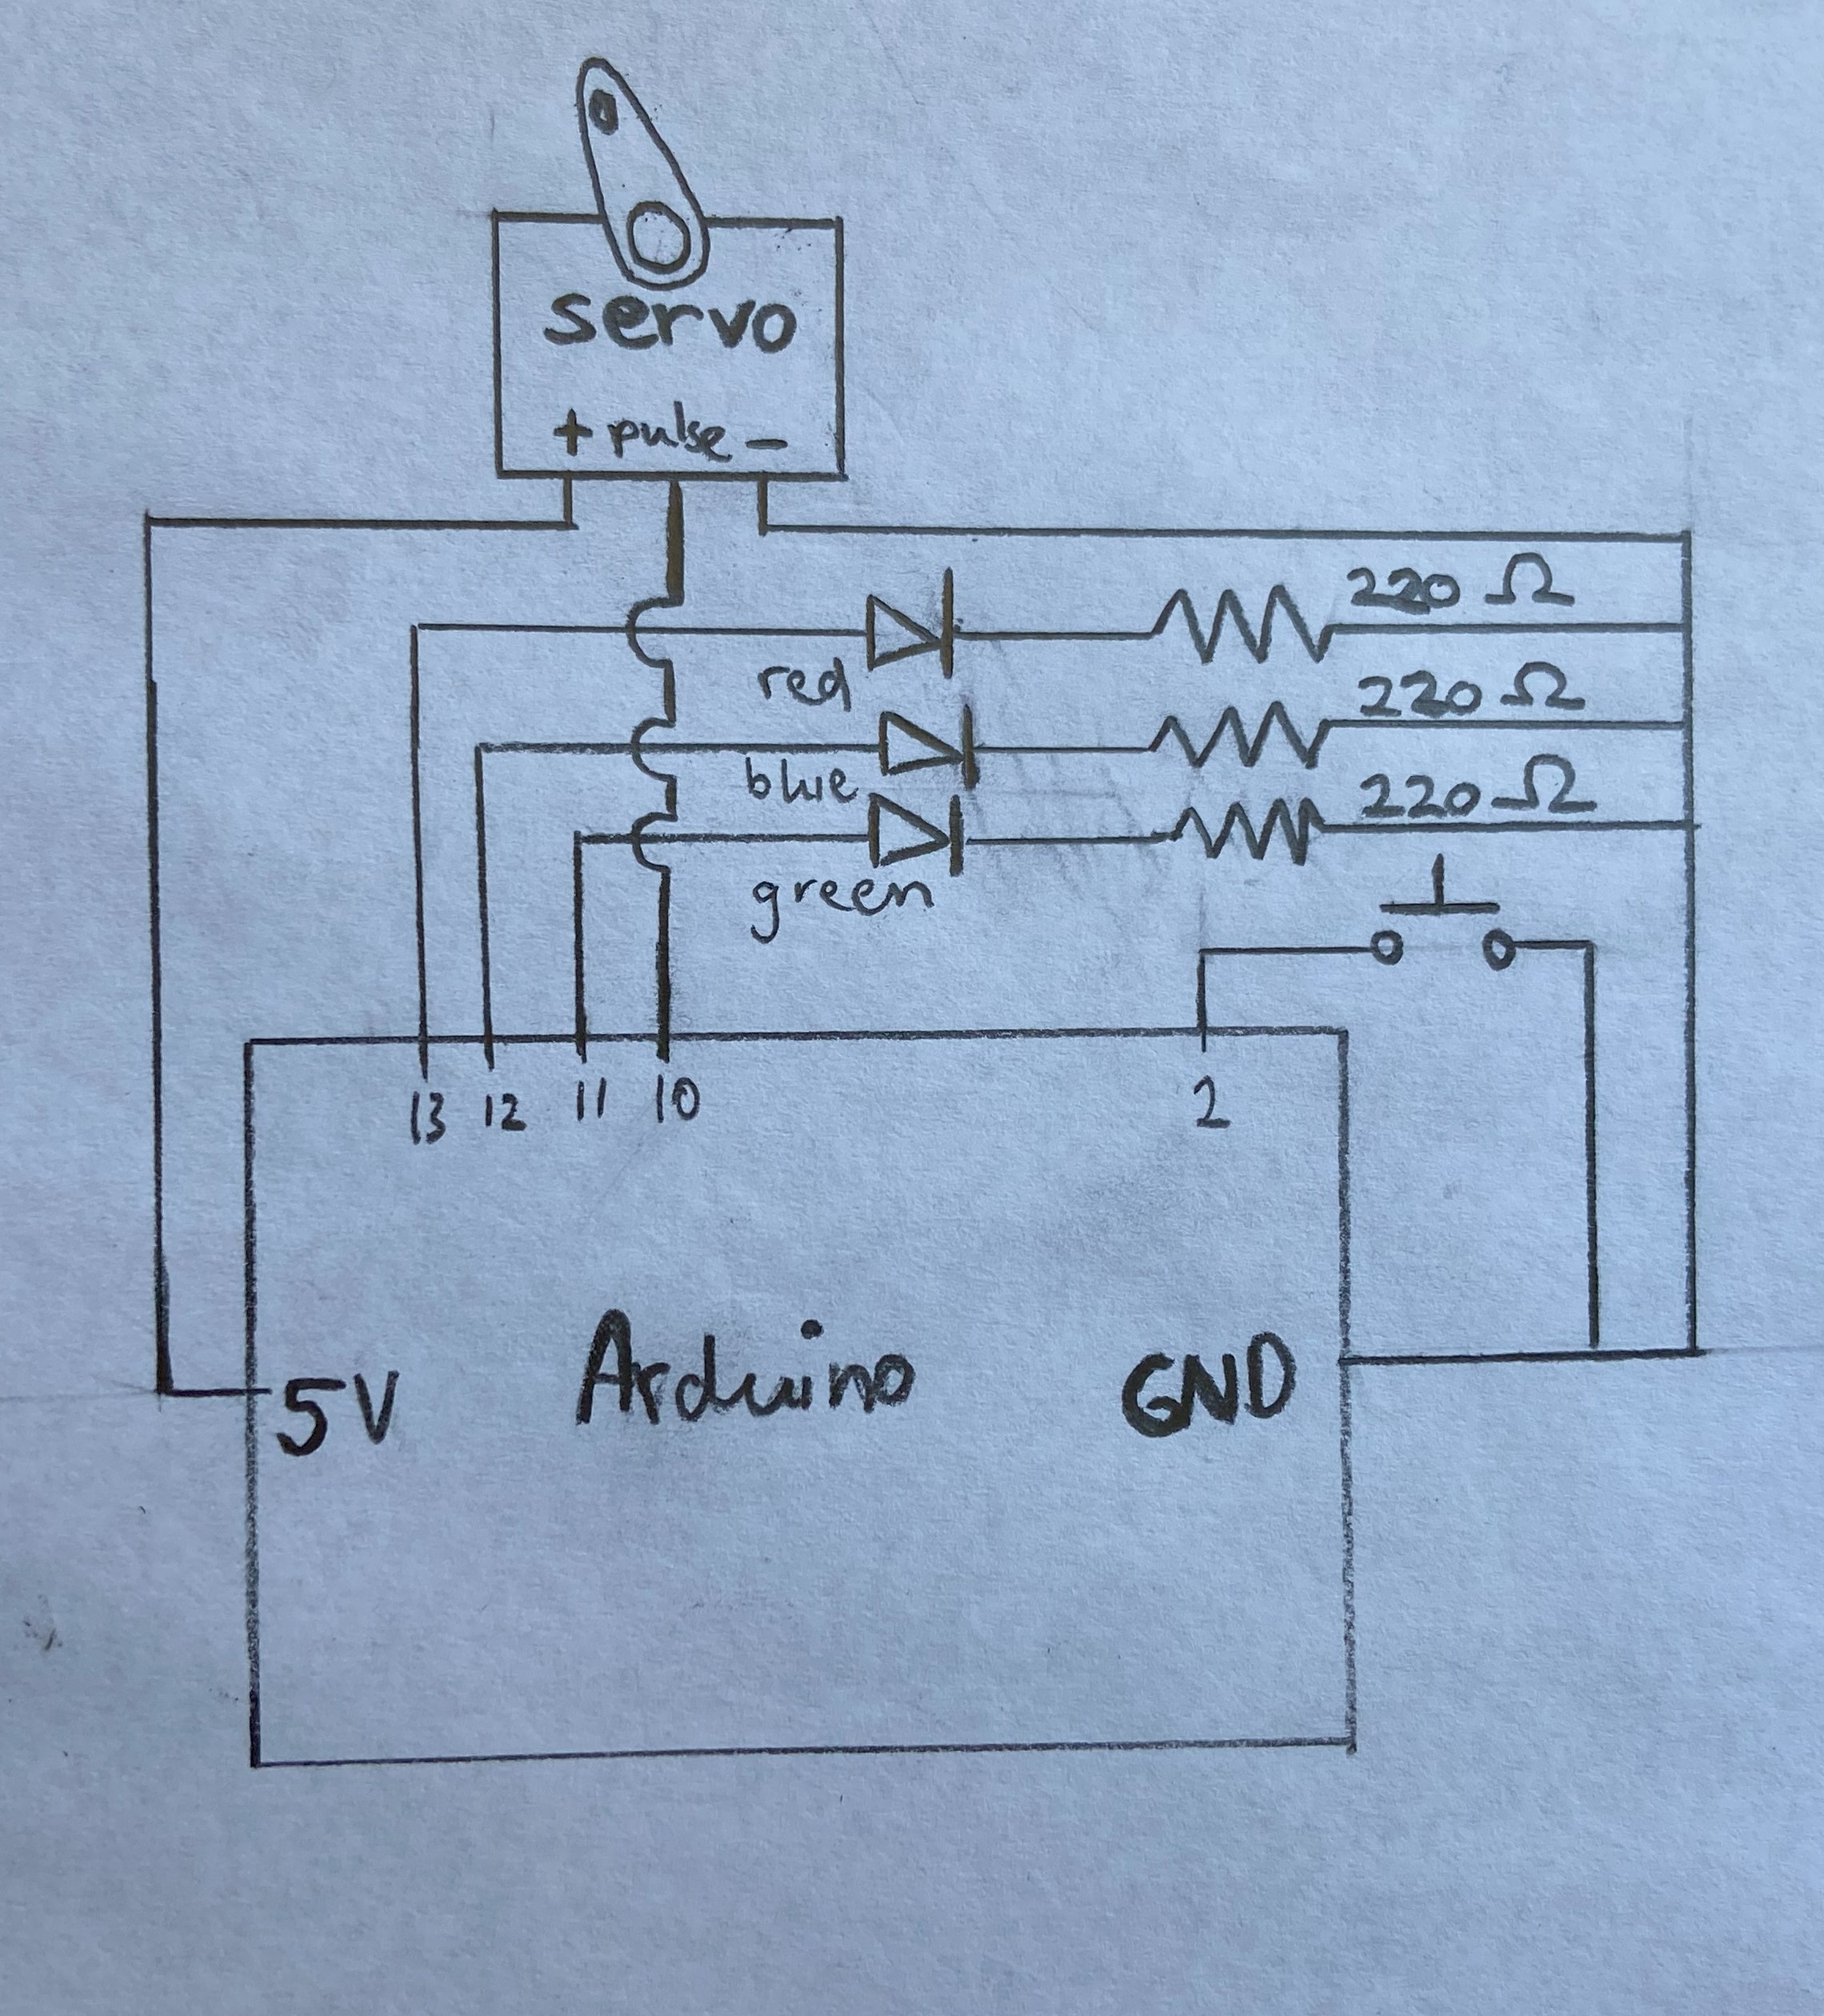 servo
+ pulse -
220 Ω
red
220 Ω
blue
220 Ω
green
13 12 11 10 2
5V Arduino GND